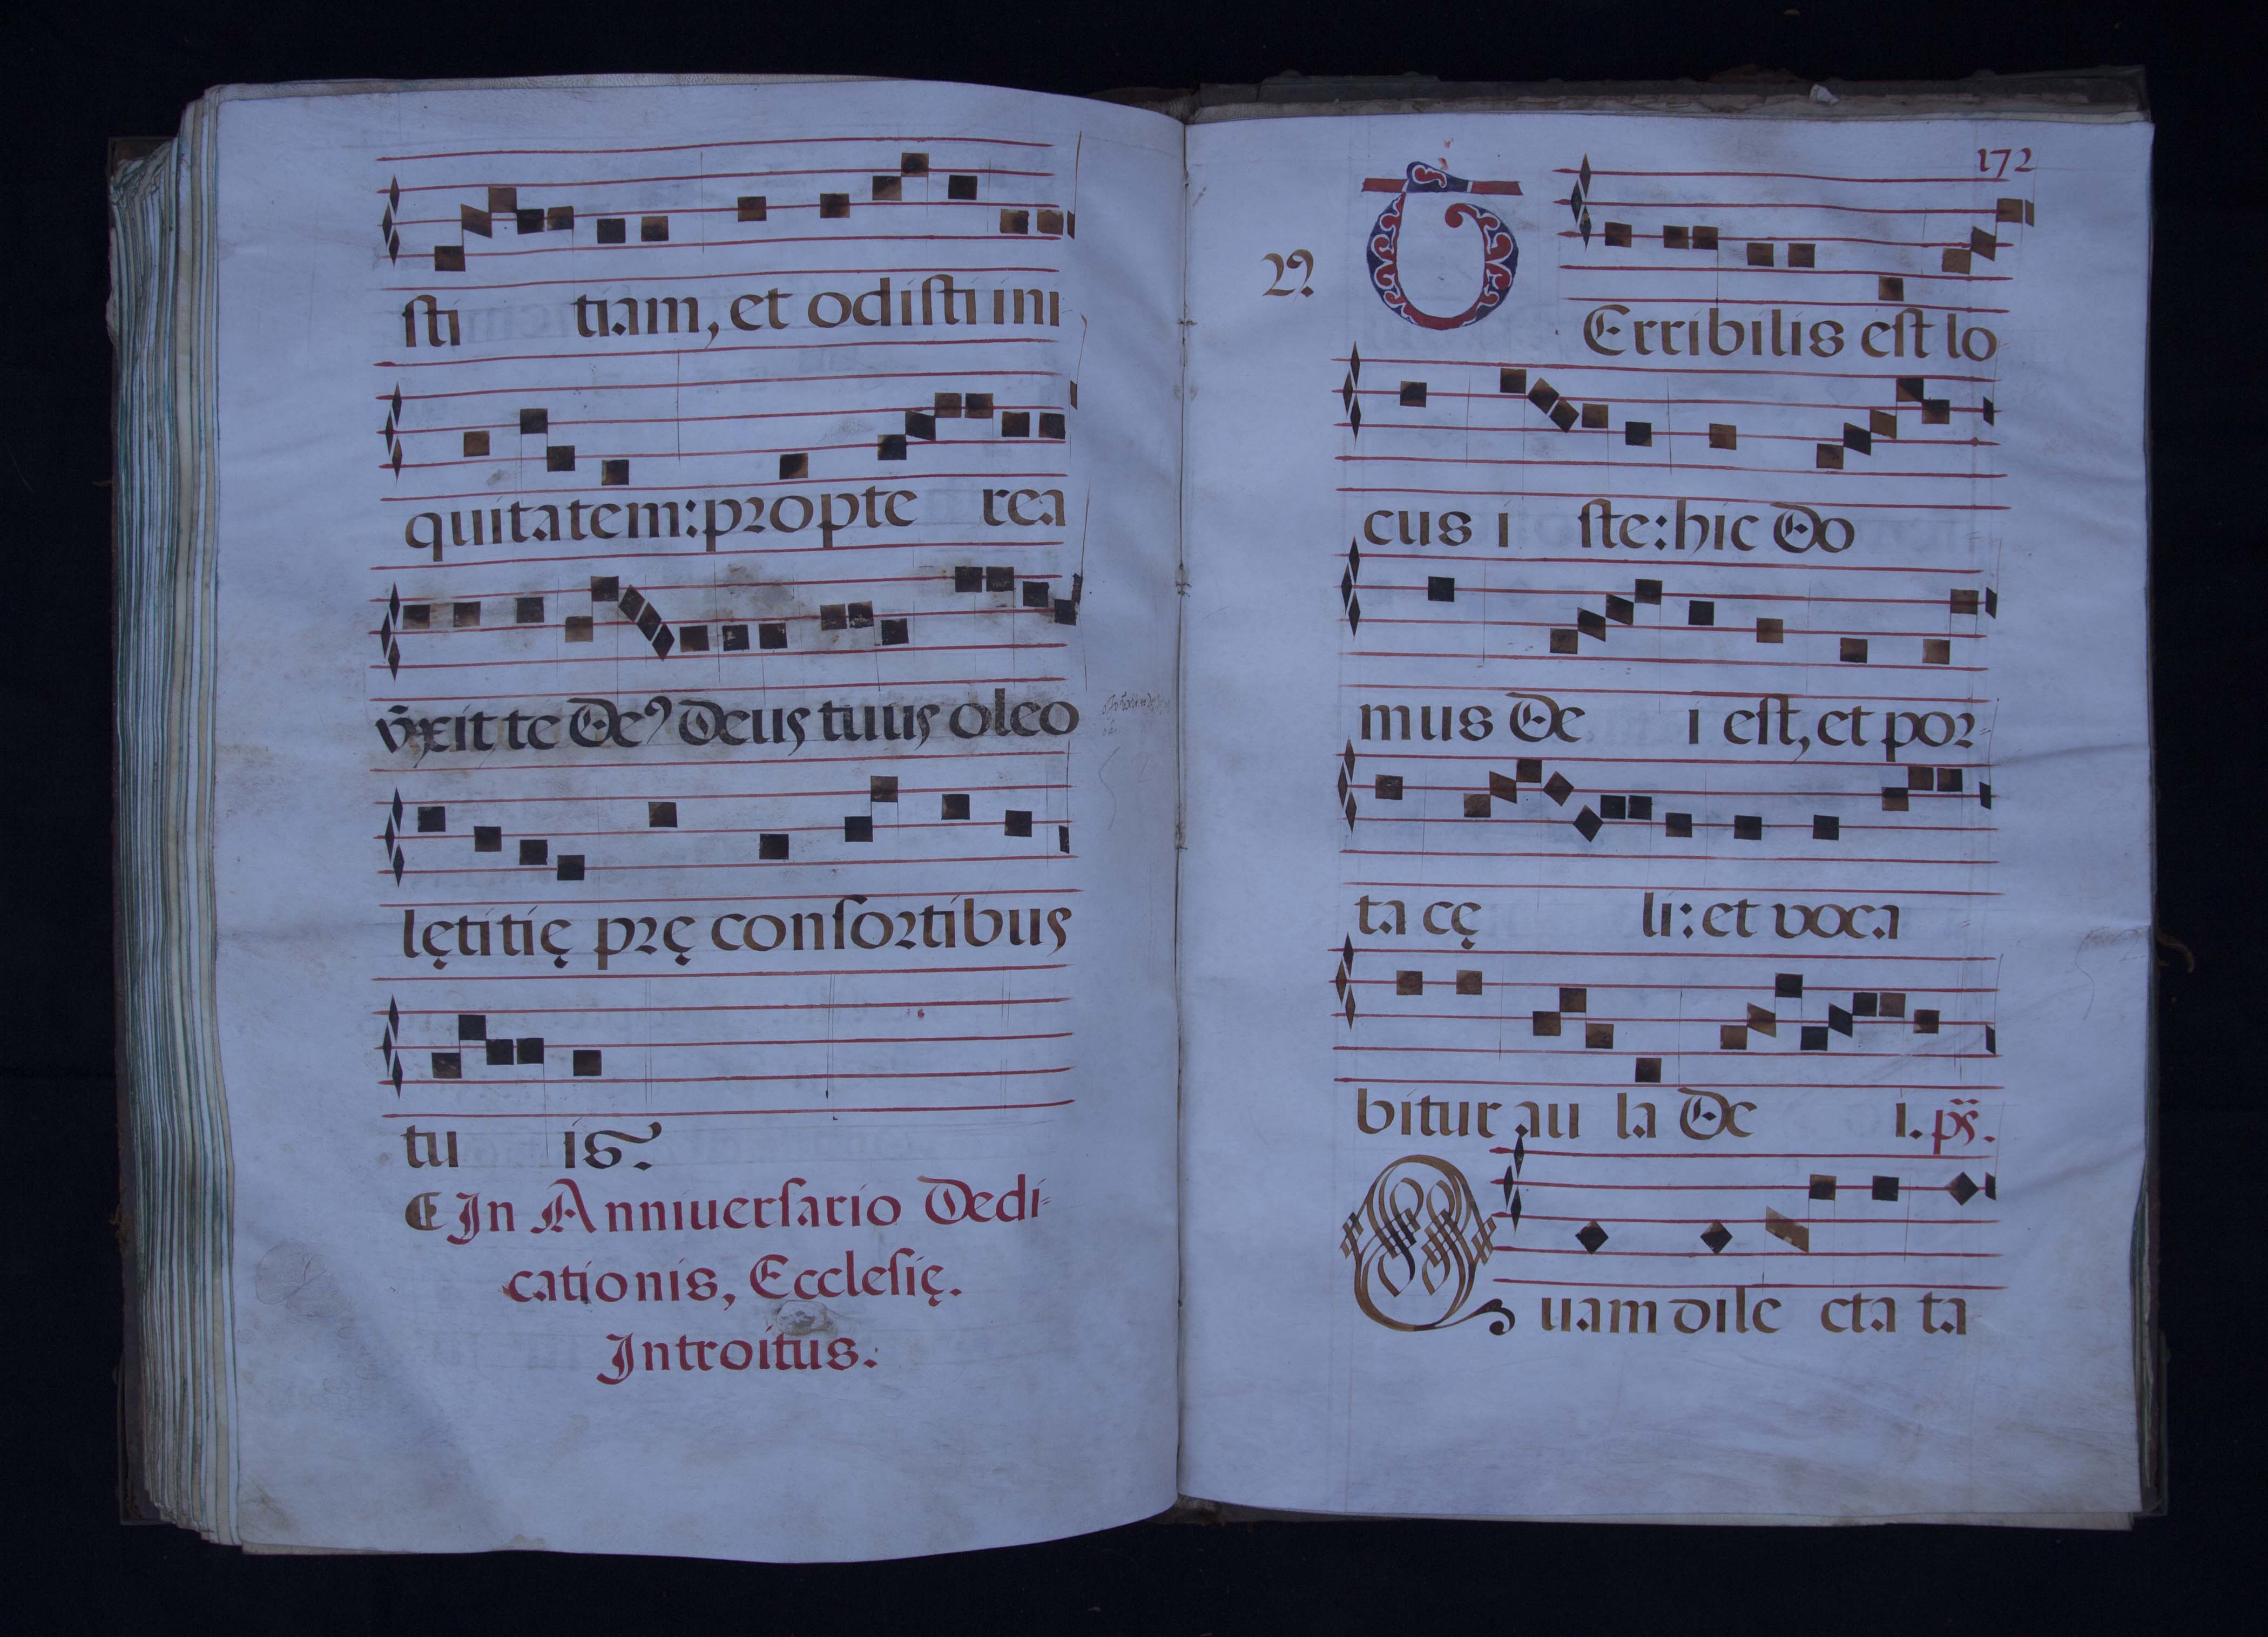 sti tiam, et odisti ini
quitatem: propte rea
vnxit te De9 Deus tuus oleo
lętitię prę consortibus
tu is.
In Anniuersario Dedi-
cationis, Ecclesię.
Introitus.
172
TErribilis est lo
cus i ste: hic Do
mus De i est, et por-
ta cę li: et voca
bitur au la De i. ps.
Quam dile cta ta